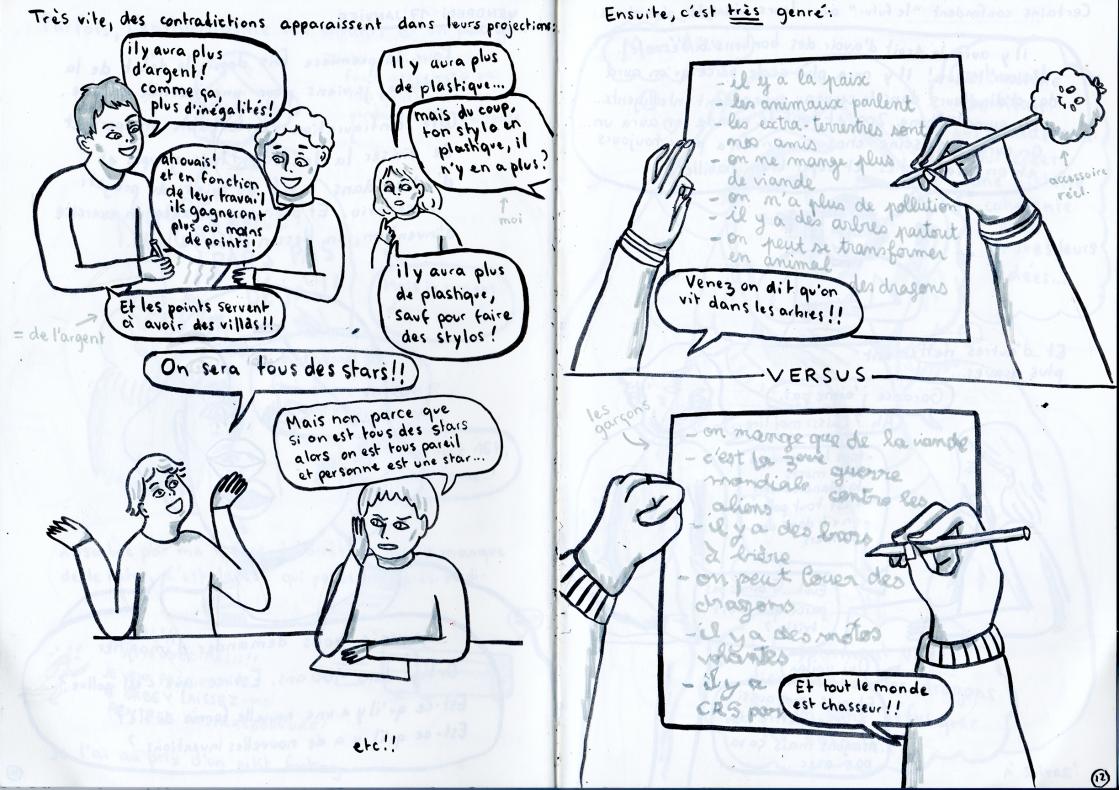 Très vite, des contradictions apparaissent dans leurs projections:
il y aura plus
d'argent!
comme ça,
plus d'inégalités!
ah ouais!
et en fonction
de leur travail
ils gagneront
plus ou moins
de points!
Et les points servent
à avoir des villas!!
= de l'argent
Il y aura plus
de plastique...
mais du coup,
ton stylo en
plastique, il
n'y en a plus?
moi
il y aura plus
de plastique,
sauf pour faire
des stylos!
On sera tous des stars!!
Mais non parce que
si on est tous des stars
alors on est tous pareil
et personne est une star...
etc!!
Ensuite, c'est très genré:
- il y a la paix
- les animaux parlent
- les extra-terrestres sont
nos amis
- on ne mange plus
de viande
- on n'a plus de pollution
- il y a des arbres partout
- on peut se transformer
en animal
des dragons
accessoire
réel.
Venez on dit qu'on
vit dans les arbres!!
VERSUS
les
garçons
- on mange que de la viande
- c'est la 3eme guerre
mondiale contre les
aliens
- il y a des bars
à bière
- on peut louer des
dragons
- il y a des motos
volantes
- il y a
CRS
Et tout le monde
est chasseur!!
12